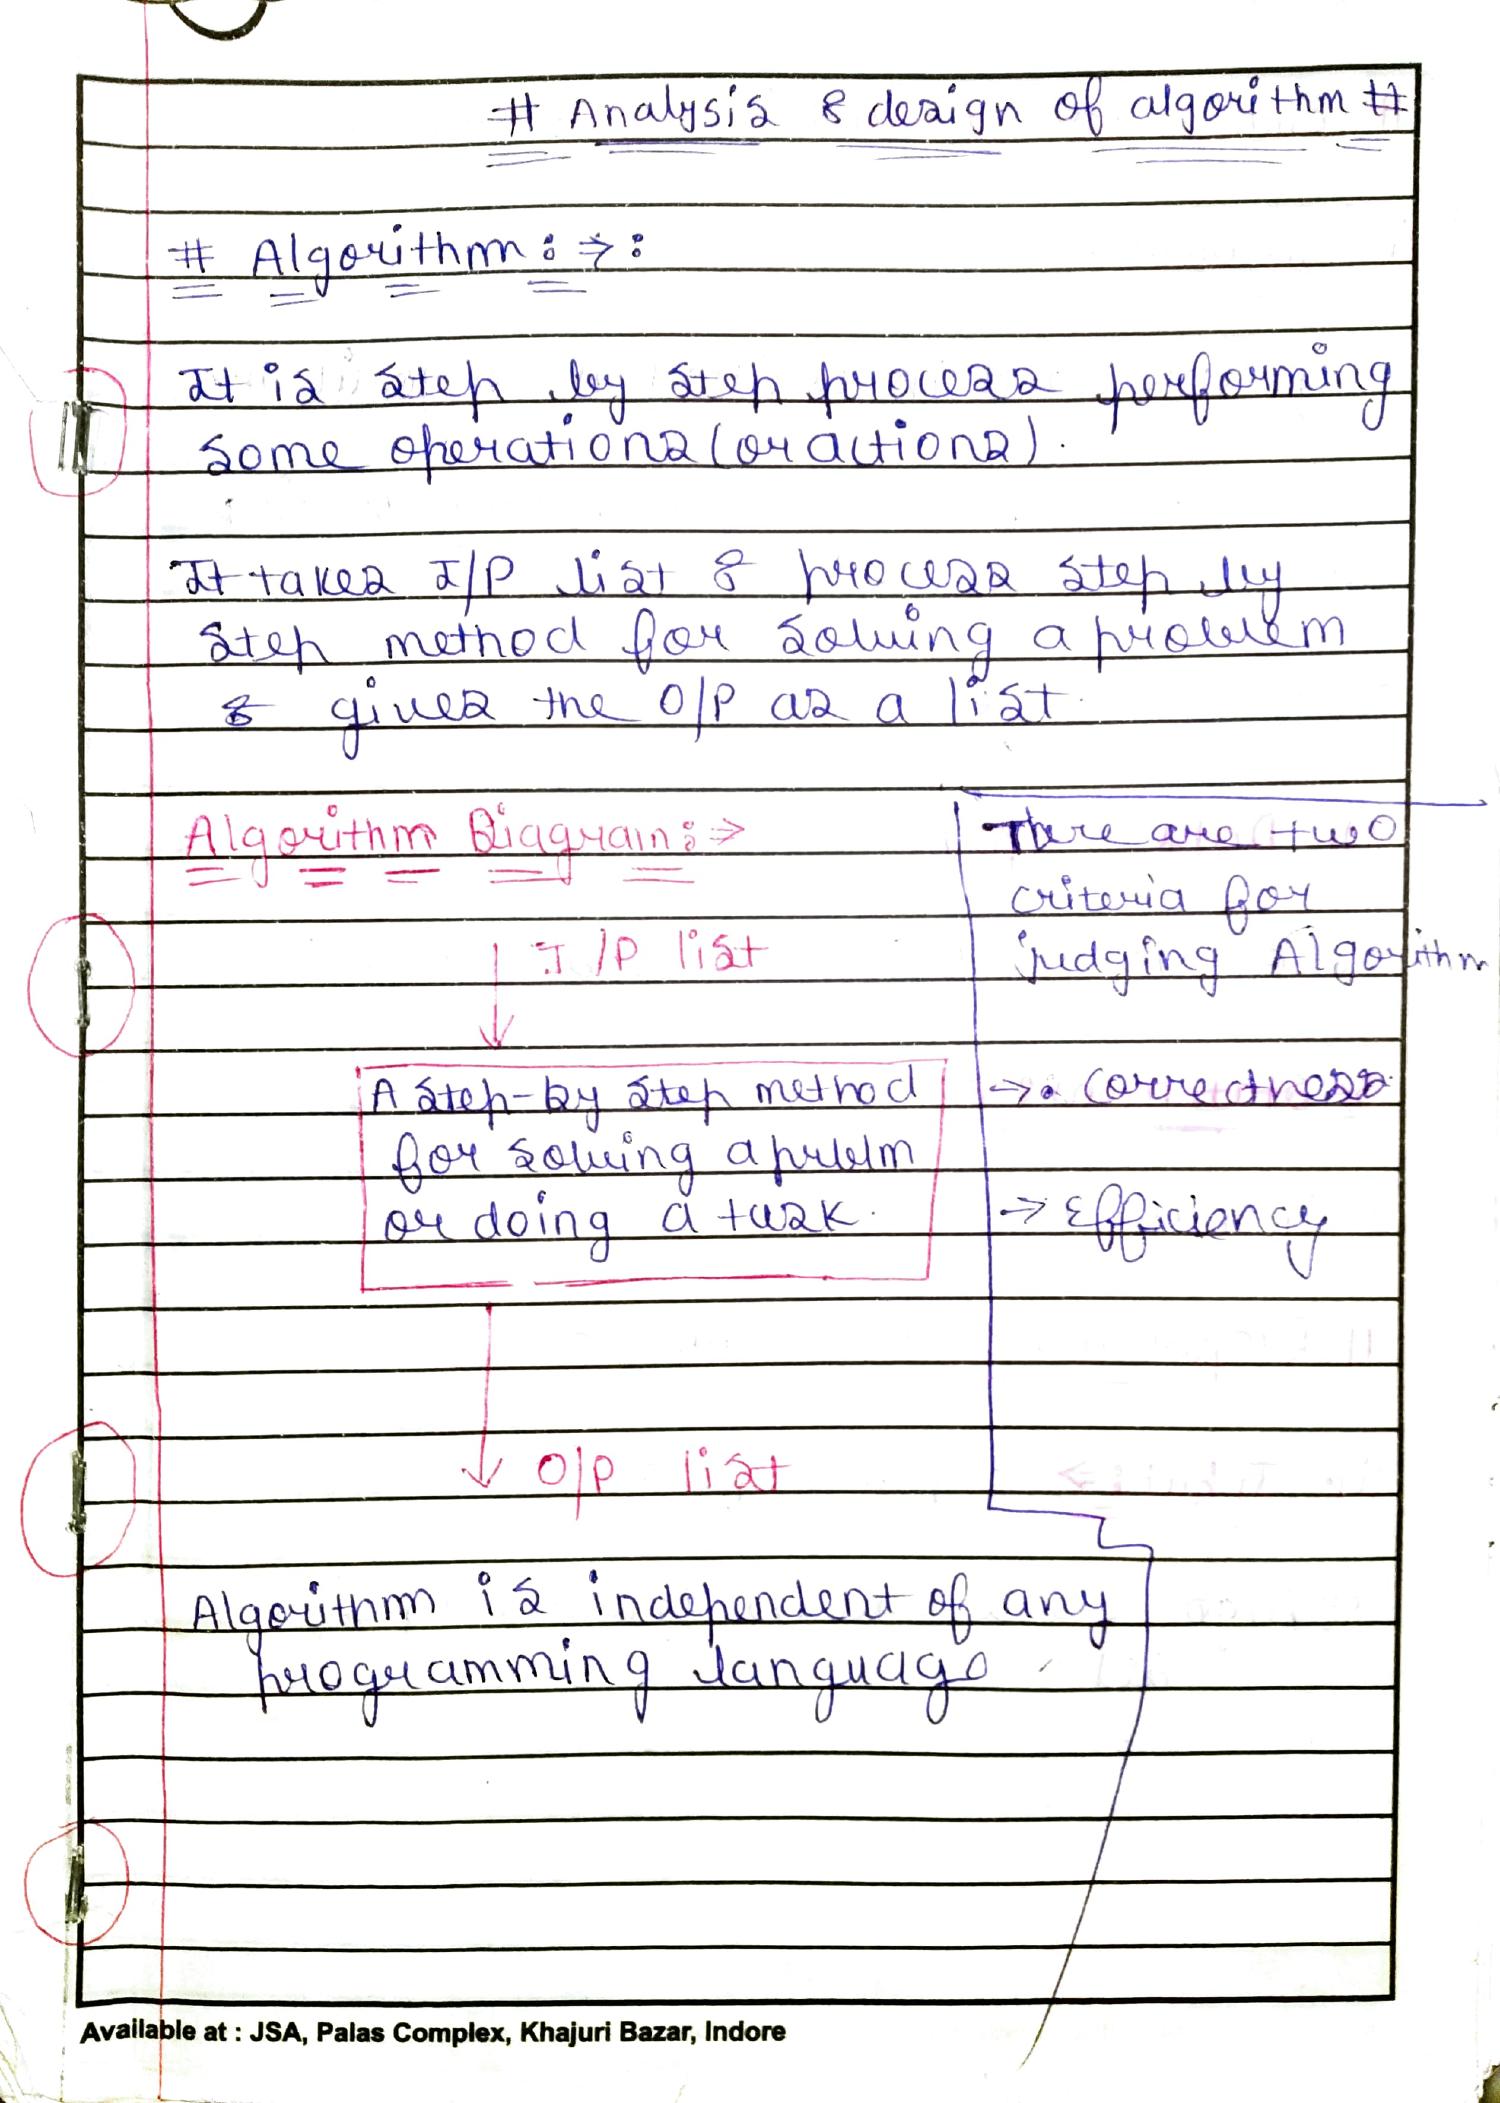 # Analysis & design of algorithm #
# Algorithm :→:
It is step by step process performing
some operations (or actions).
It takes I/P list & process step by
step method for solving a problem
& gives the O/P as a list.
Algorithm Diagram :→
I/P list
A step-by step method
for solving a prblm
or doing a task.
O/P list
There are two
criteria for
judging Algorithm
→• Correctness
→ Efficiency
Algorithm is independent of any
programming language.
Available at : JSA, Palas Complex, Khajuri Bazar, Indore